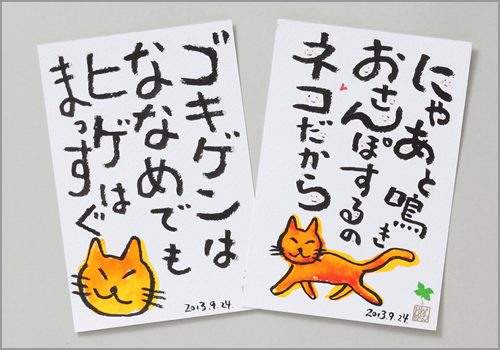 ゴキゲンは
ななめでも
ヒゲは
まっすぐ
2013.9.24.
にゃあと鳴き
おさんぽするの
ネコだから
2013.9.24.